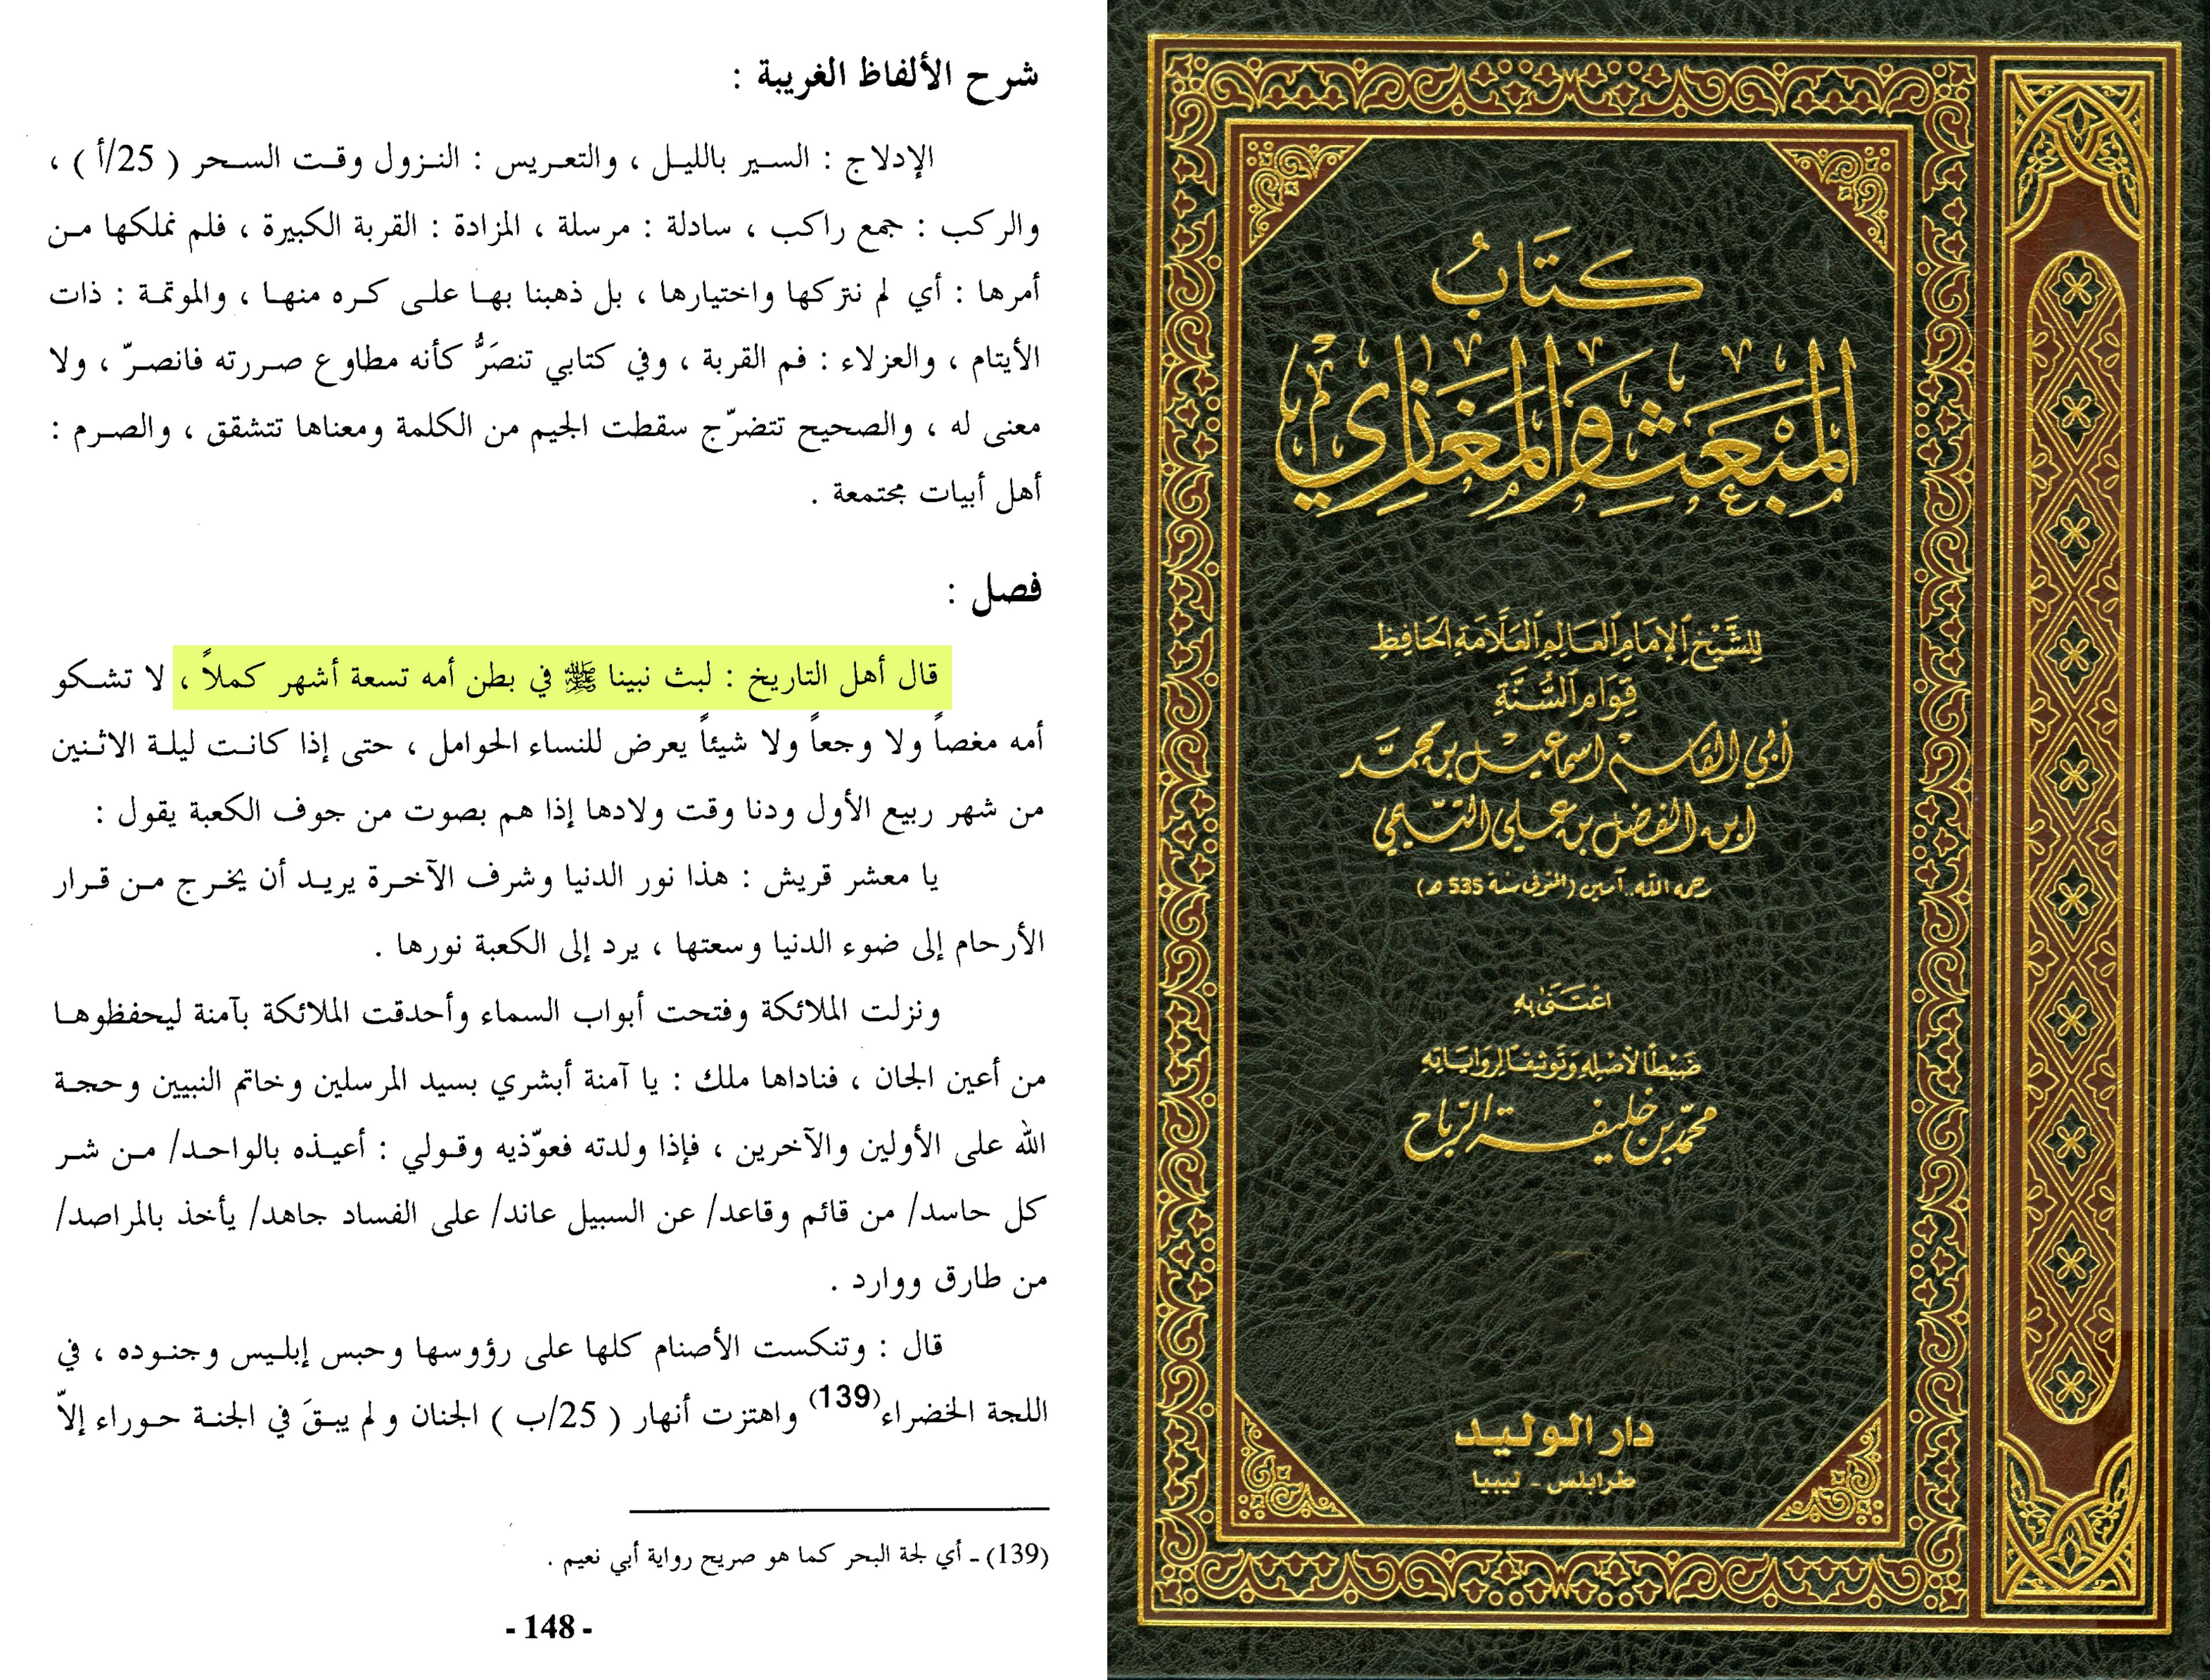 شرح الألفاظ الغريبة :
الإدلاج : السير بالليل ، والتعريس : النزول وقت السحر ( 25/أ ) ،
والركب : جمع راكب ، سادلة : مرسلة ، المزادة : القربة الكبيرة ، فلم نملكها من
أمرها : أي لم نتركها واختيارها ، بل ذهبنا بها على كره منها ، والموتمة : ذات
الأيتام ، والعزلاء : فم القربة ، وفي كتابي تنصَرُّ كأنه مطاوع صررته فانصرّ ، ولا
معنى له ، والصحيح تتضرّج سقطت الجيم من الكلمة ومعناها تتشقق ، والصرم :
أهل أبيات مجتمعة .
فصل :
قال أهل التاريخ : لبث نبينا ﷺ في بطن أمه تسعة أشهر كملاً ، لا تشكو
أمه مغصاً ولا وجعاً ولا شيئاً يعرض للنساء الحوامل ، حتى إذا كانت ليلة الاثنين
من شهر ربيع الأول ودنا وقت ولادها إذا هم بصوت من جوف الكعبة يقول :
يا معشر قريش : هذا نور الدنيا وشرف الآخرة يريد أن يخرج من قرار
الأرحام إلى ضوء الدنيا وسعتها ، يرد إلى الكعبة نورها .
ونزلت الملائكة وفتحت أبواب السماء وأحدقت الملائكة بآمنة ليحفظوها
من أعين الجان ، فناداها ملك : يا آمنة أبشري بسيد المرسلين وخاتم النبيين وحجة
الله على الأولين والآخرين ، فإذا ولدته فعوّذيه وقولي : أعيذه بالواحد/ من شر
كل حاسد/ من قائم وقاعد/ عن السبيل عاند/ على الفساد جاهد/ يأخذ بالمراصد/
من طارق ووارد .
قال : وتنكست الأصنام كلها على رؤوسها وحبس إبليس وجنوده ، في
اللجة الخضراء(139) واهتزت أنهار ( 25/ب ) الجنان و لم يبقَ في الجنة حوراء إلاّ
(139) ـ أي لجة البحر كما هو صريح رواية أبي نعيم .
- 148 -
كتابُ
المبعث والمغازي
للشيخ الإمام العالم العلامة الحافظ
قوام السنة
أبي القاسم اسماعيل بن محمد
ابن الفضل بن علي التيمي
رحمه الله..آمين (المتوفى سنة 535 هـ)
اعتنى به
ضبطًا لأصله وتوثيقًا لرواياته
محمد بن خليفة الرباح
دار الوليد
طرابلس - ليبيا